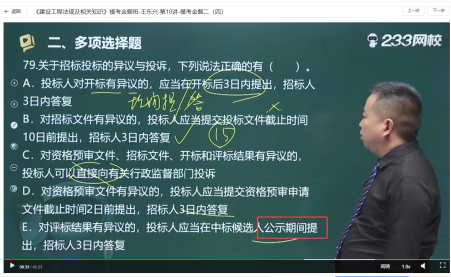 返回
《建设工程法规及相关知识》模考金题班-王东兴-第10讲-模考金题二（四）
上一讲
下一讲
二、多项选择题
233网校
79.关于招标投标的异议与投诉，下列说法正确的有（ ）。
A、投标人对开标有异议的，应当在开标后3日内提出，招标人
3日内答复
B、对招标文件有异议的，投标人应当提交投标文件截止时间
10日前提出，招标人3日内答复
⑮
C、对资格预审文件、招标文件、开标和评标结果有异议的，
投标人可以直接向有关行政监督部门投诉
D、对资格预审文件有异议的，投标人应当提交资格预审申请
文件截止时间2日前提出，招标人3日内答复
E、对评标结果有异议的，投标人应当在中标候选人公示期间提
出，招标人3日内答复